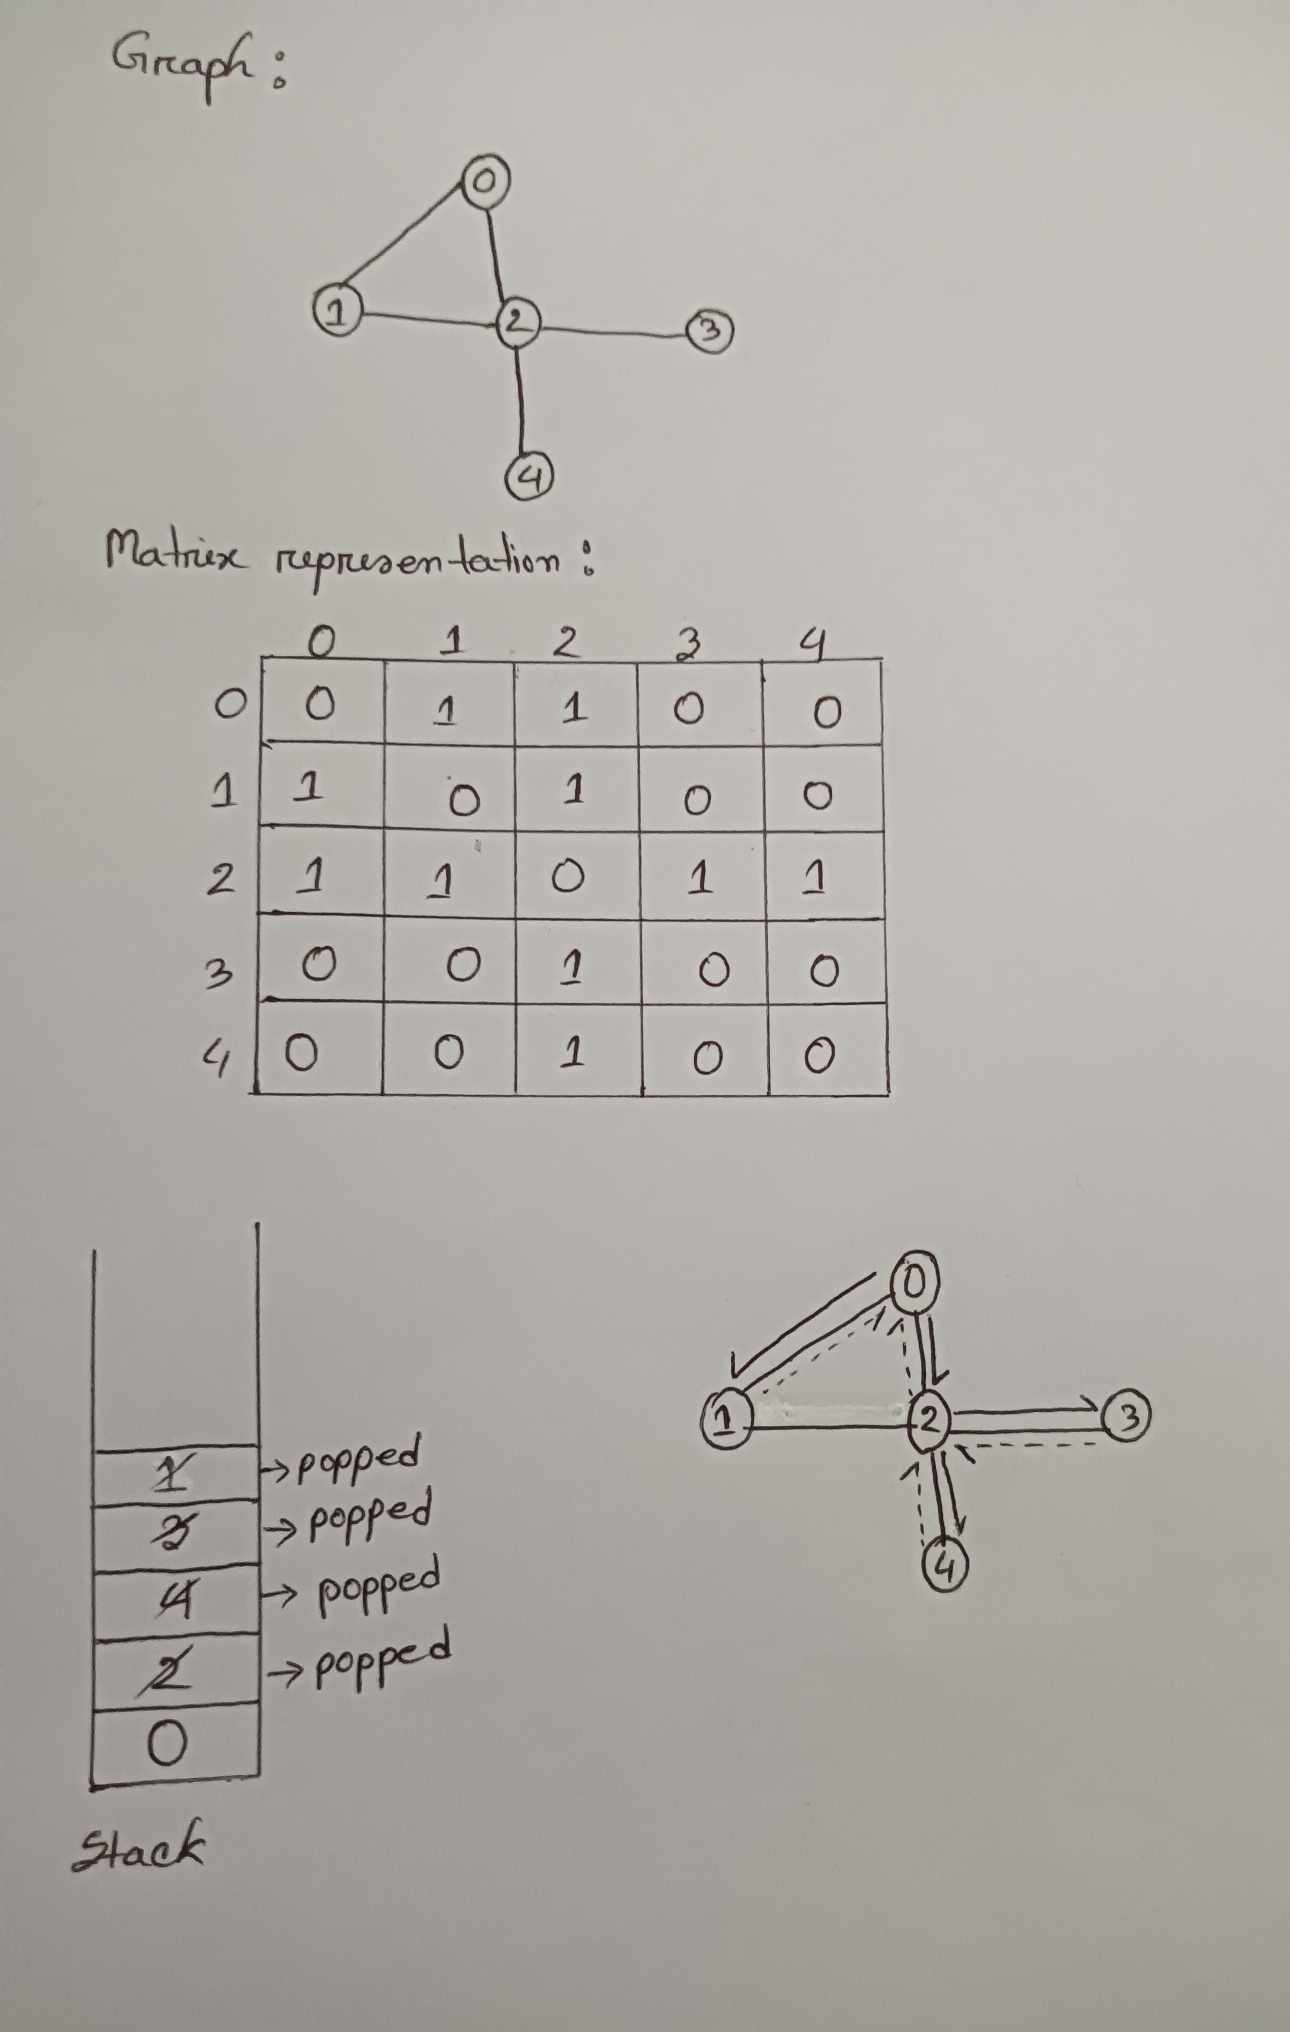 Graph :
0
1 2 3
4
Matrix representation :
0 1 2 3 4
0 0 1 1 0 0
1 1 0 1 0 0
2 1 1 0 1 1
3 0 0 1 0 0
4 0 0 1 0 0
1 → popped
3 → popped
4 → popped
2 → popped
0
Stack
0
1 2 3
4